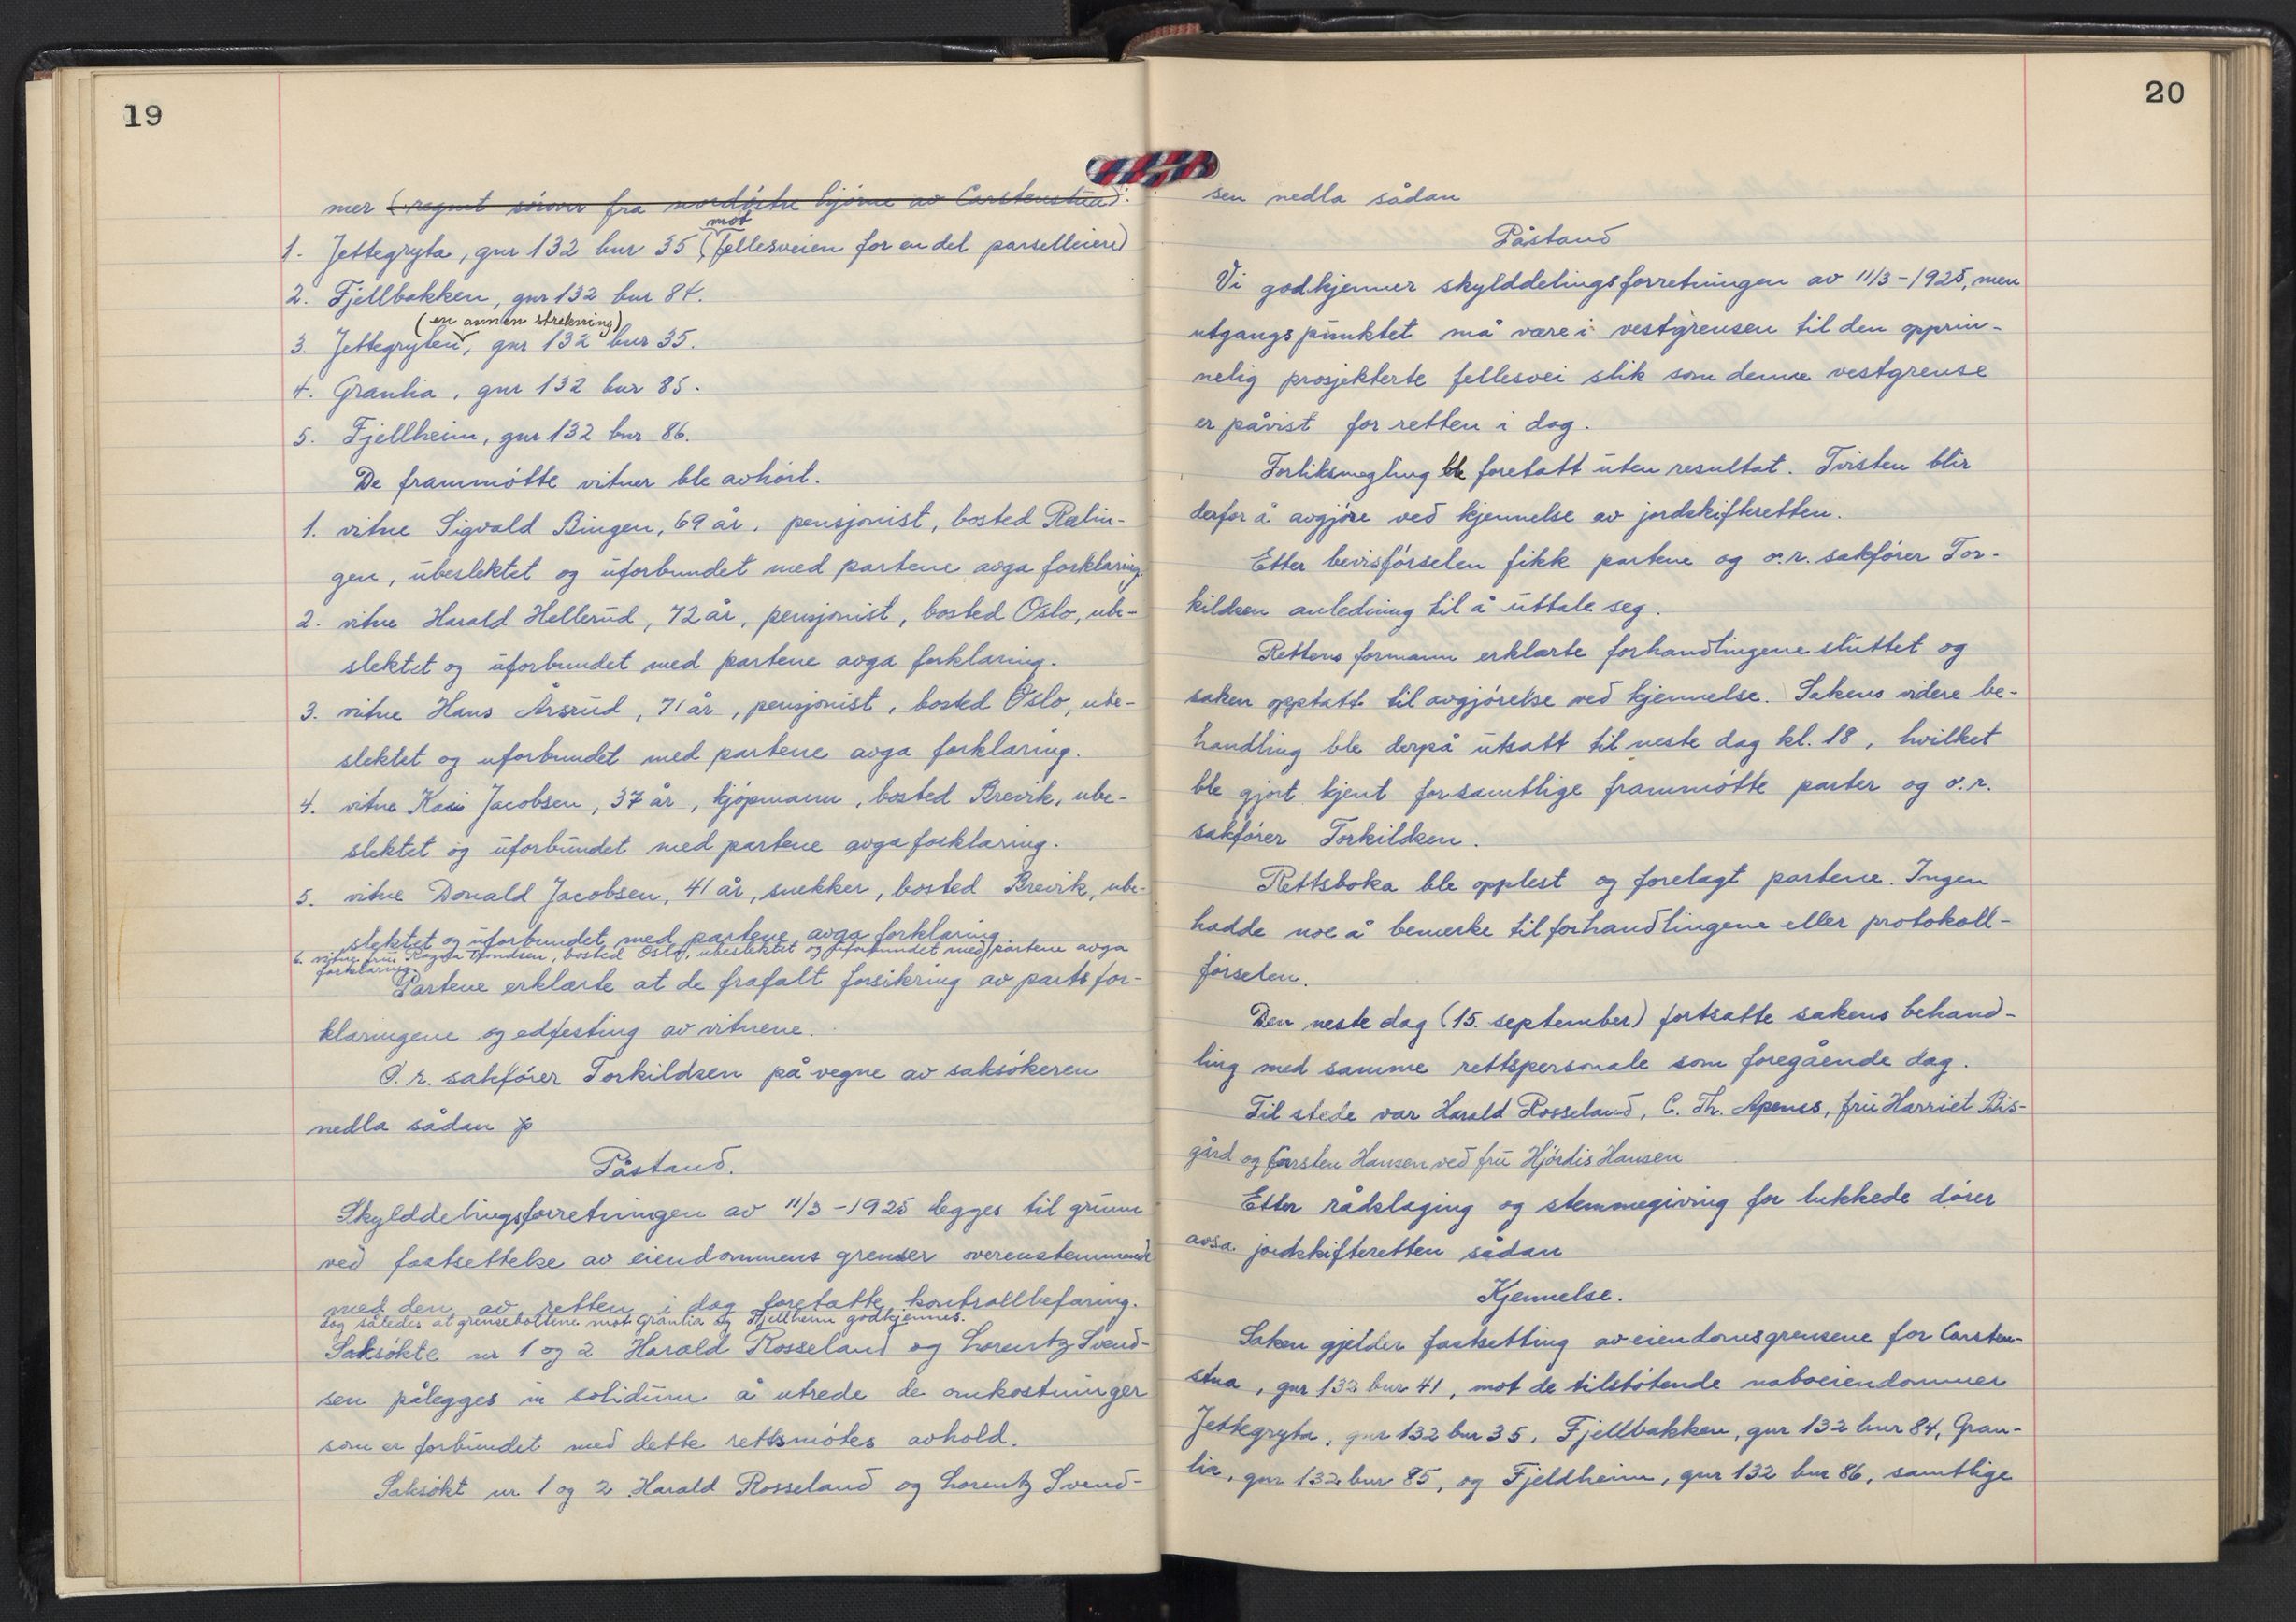 19
mer (regnet sørover fra nordøstre hjørne av Carstenstua):
mot
1. Jettegryta, gnr 132 bnr 35 (fellesveien for en del parselleiere)
2. Fjellbakken, gnr 132 bnr 84.
(en annen strekning)
3. Jettegryten, gnr 132 bnr 35.
4. Granlia, gnr 132 bnr 85.
5. Fjellheim, gnr 132 bnr 86.
De frammøtte vitner ble avhørt.
1. vitne Sigvald Bingen, 69 år, pensjonist, bosted Rælin-
gen, ubeslektet og uforbundet med partene avga forklaring.
2. vitne Harald Hellerud, 72 år, pensjonist, bosted Oslo, ube-
slektet og uforbundet med partene avga forklaring.
3. vitne Hans Årsrud, 71 år, pensjonist, bosted Oslo, ube-
slektet og uforbundet med partene avga forklaring.
4. vitne Kai Jacobsen, 37 år, kjøpmann, bosted Brevik, ube-
slektet og uforbundet med partene avga forklaring.
5. vitne Donald Jacobsen, 41 år, snekker, bosted Brevik, ube-
slektet og uforbundet med partene avga forklaring.
6. vitne fru Ragna Trondsen, bosted Oslo, ubeslektet og uforbundet med partene avga
forklaring.
Partene erklærte at de frafalt forsikring av partsfor-
klaringene og edfesting av vitnene.
O.r. sakfører Torkildsen på vegne av saksøkeren
nedla sådan p
Påstand.
Skylddelingsforretningen av 11/3-1925 legges til grunn
ved fastsettelse av eiendommens grenser overenstemmende
med den av retten i dag foretatte kontrollbefaring.
dog således at grenseboltene mot Granlia og Fjellheim godkjennes.
Saksøkte nr 1 og 2 Harald Rosseland og Lorentz Svend-
sen pålegges in solidum å utrede de omkostninger
som er forbundet med dette rettsmøtes avhold.
Saksøkt nr 1 og 2 Harald Rosseland og Lorentz Svend-
20
sen nedla sådan
Påstand
Vi godkjenner skylddelingsforretningen av 11/3-1925, men
utgangspunktet må være i vestgrensen til den opprin-
nelig prosjekterte fellesvei slik som denne vestgrense
er påvist for retten i dag.
Forliksmegling ble foretatt uten resultat. Tvisten blir
derfor å avgjøre ved kjennelse av jordskifteretten.
Etter bevisførselen fikk partene og o.r. sakfører Tor-
kildsen anledning til å uttale seg.
Rettens formann erklærte forhandlingene sluttet og
saken opptatt til avgjørelse ved kjennelse. Sakens videre be-
handling ble derpå utsatt til neste dag kl. 18, hvilket
ble gjort kjent for samtlige frammøtte parter og o.r.
sakfører Torkildsen.
Rettsboka ble opplest og forelagt partene. Ingen
hadde noe å bemerke til forhandlingene eller protokoll-
førselen.
Den neste dag (15. september) fortsatte sakens behand-
ling med samme rettspersonale som foregående dag.
Til stede var Harald Rosseland, C. Th. Apenes, fru Harriet Bis-
gård og Carsten Hansen ved fru Hjørdis Hansen
Etter rådslaging og stemmegiving for lukkede dører
avsa jordskifteretten sådan
Kjennelse.
Saken gjelder fastsetting av eiendomsgrensene for Carsten-
stua, gnr 132 bnr 41, mot de tilstøtende naboeiendommer
Jettegryta, gnr 132 bnr 35, Fjellbakken, gnr 132 bnr 84, Gran-
lia, gnr 132 bnr 85, og Fjellheim, gnr 132 bnr 86, samtlige